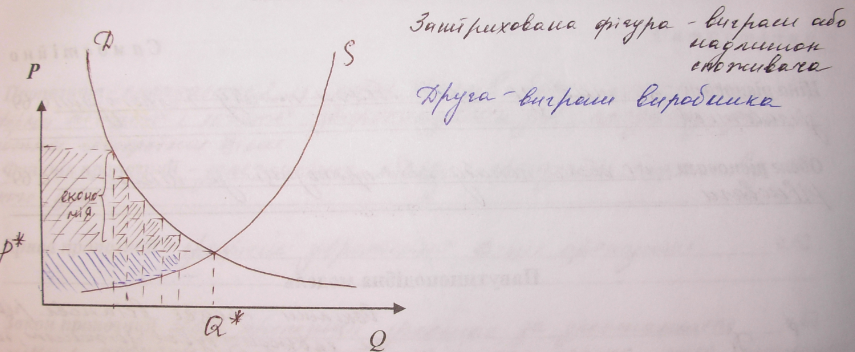 Заштрихована фігура - виграш або
надлишок
споживача
Друга - виграш виробника
D
S
P
еконо-
мія
P*
Q*
Q